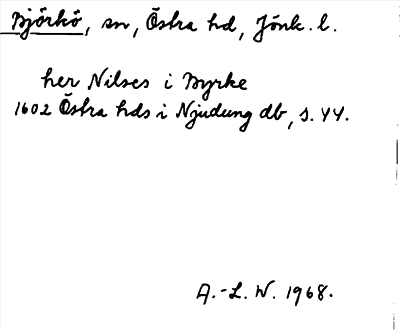 Björkö, sn, Östra hd, Jönk. l.
her Nilses i Byrke
1602 Östra hds i Njudung db, s. 44.
A.-L. W. 1968.